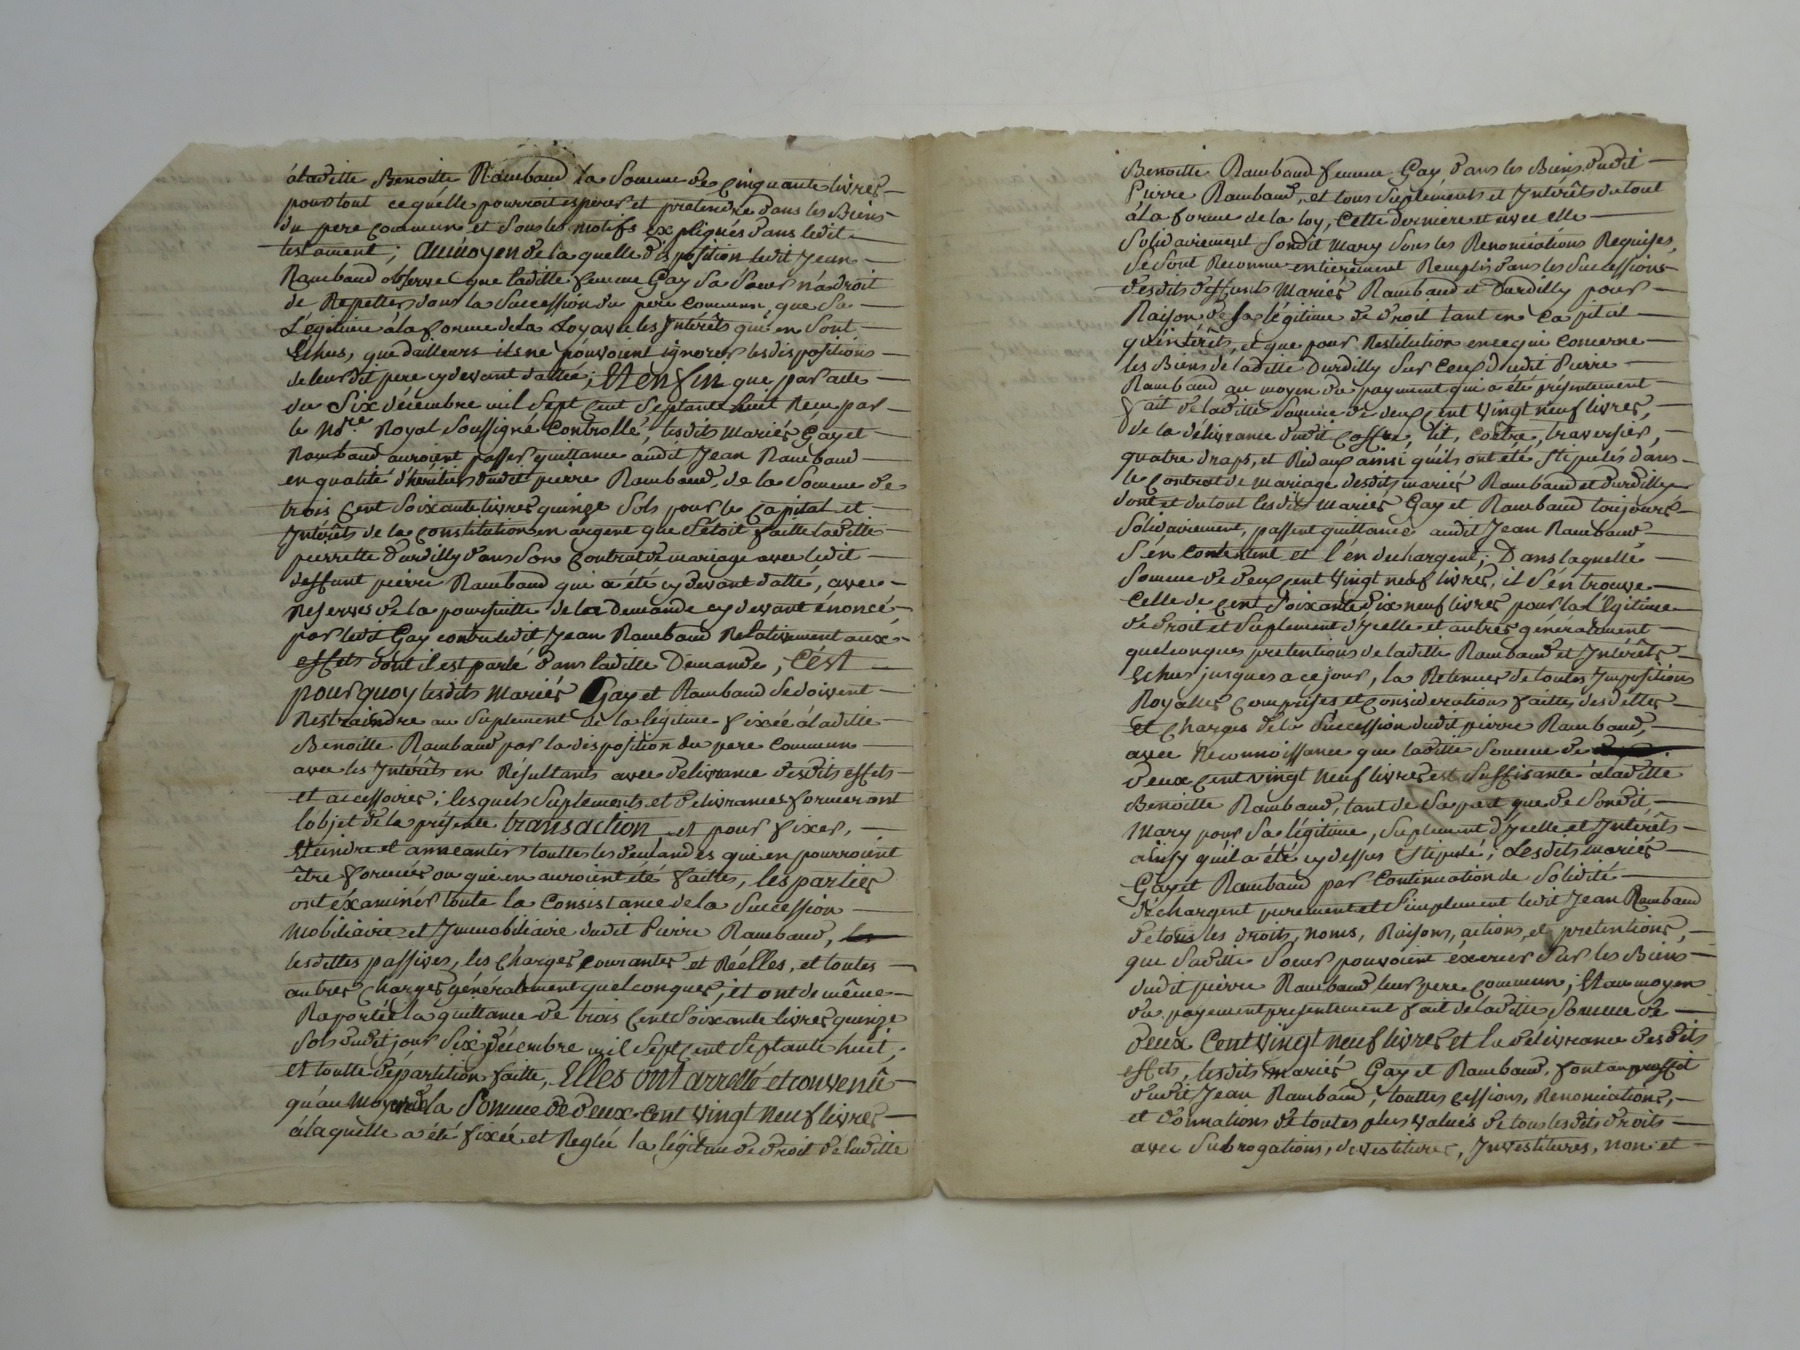 à laditte Benoitte Rambaud la Somme de cinquante livres
pour tout ce quélle pourroit espérer et pretendre dans les Biens
du pere commun et Sous les motifs expliqués dans ledit
testament; Au moyen de la quelle disposition ledit Jean
Rambaud observe que laditte femme Gay Sa Soeur n'a droit
de Repetter dans la Succession du pere commun, que Sa
Légitime à la forme de la Loy avec les Intérêts qui en Sont
Echus, que dailleurs ils ne pouvoient ignorer les dispositions
de leur dit pere cy devant dattée; Et enfin que par acte
du Six décembre mil Sept cent Septante huit Reçu par
le No.re Royal Soussigné Controllé, lesdits mariés Gay et
Rambaud auroient passer quittance audit Jean Rambaud
en qualité d'héritier dudit pierre Rambaud, de la Somme de
trois cent Soixante livres quinze Sols pour le capital et
Intérêts de la constitution en argent que S'étoit faitte laditte
pierrette Durdilly dans Son contrat de mariage avec ledit
deffunt pierre Rambaud qui a été cy devant datté, avec
Reserves de la poursuitte de la Demande cy devant énoncé
par ledit Gay contre ledit Jean Rambaud Relativement aux
effets dont il est parlé dans laditte Demande, C'ést
pourquoy lesdits Mariés Gay et Rambaud Se doivent
Restraindre au Suplement de la légitime fixée à laditte
Benoitte Rambaud par la disposition du pere Commun
avec les Intérêts en Résultants avec délivrance desdits effets
et accessoires; lesquels Suplements et délivrances formeront
lobjet de la présente transaction et pour fixer,
Eteindre et anneantir touttes les demandes qui en pourroient
être formées ou qui en auroient été faittes, les parties
ont éxaminés toute la Consistance de la Succession
mobiliaire et Immobiliaire dudit Pierre Rambaud,
les dettes passives, les charges courantes et Réelles, et toutes
autres charges généralement quelconques, et ont de même
Raporté la quittance de trois Cent Soixante livres quinze
Sols dudit jour Six Décembre mil Sept cent Septante huit;
et toutte départition faitte, Elles ont arretté et convenû
qu'au moyen de la Somme de deux Cent vingt neuf livres
à laquelle a été fixée et Reglée la légitime de droit de laditte
Benoitte Rambaud femme Gay dans les Biens dudit
Pierre Rambaud, et tous Suplements et Intérêts du tout
à la forme de la loy, Cette derniere et avec elle
Solidairement Sondit Mary Sous les Renonciations Requises,
Se Sont Reconnu entierement Remplis dans les Successions
desdits deffunts Mariés Rambaud et Durdilly pour
Raison de Sa légitime de droit tant en Capital
qu'intérêts, et que pour Restitution en ce qui Concerne
les Biens de laditte Durdilly Sur Ceux dudit Pierre
Rambaud au moyen du payment qui a été présentement
fait de laditte Somme de deux cent vingt neuf livres,
de la délivrance dudit coffre, lit, coetre, traversier,
quatre draps, et Rideaux ainsi qu'ils ont été Stipulés dans
le Contrat de mariage desdits mariés Rambaud et Durdilly
dont et du tout lesdits mariés Gay et Rambaud toujours
Solidairement, passent quittance audit Jean Rambaud
S'en Contentent et l'en déchargent; Dans laquelle
Somme de deux cent vingt neuf livres, il S'en trouve
Celle de cent Soixante dix neuf livres pour la Légitime
de droit et Suplement d'Jcelle et autres généralement
quelconques pretentions de laditte Rambaud et Intérêts
Echus jusques a ce jour, la Retenue de toutes Impositions
Royalles Comprises et Considerations faittes des dettes
et Charges de la Succession dudit pierre Rambaud,
avec Reconnoissance que laditte Somme de
deux Cent vingt neuf livres est Suffisante à laditte
Benoitte Rambaud, tant de Sa part que de Sondit
Mary pour Sa légitime, Suplement d'Jcelle et Intérêts
ainsy qu'il a été cy dessus Stipulé, Lesdits mariés
Gay et Rambaud par Continuation de Solidité
déchargent purement et Simplement ledit Jean Rambaud
de tous les droits, noms, Raisons, actions, et prétentions,
que Saditte Soeur pouvoient éxercer Sur les Biens
dudit pierre Rambaud leur pere commun; Et au moyen
du payement présentement fait de laditte Somme de
deux Cent vingt neuf livres et la délivrance desdits
effets, lesdits mariés Gay et Rambaud, font au proffit
dudit Jean Rambaud, touttes cessions, Renonciations,
et donnations de toutes plus values de tous lesdits droits
avec Subrogations, devestitures, Investitures, non et